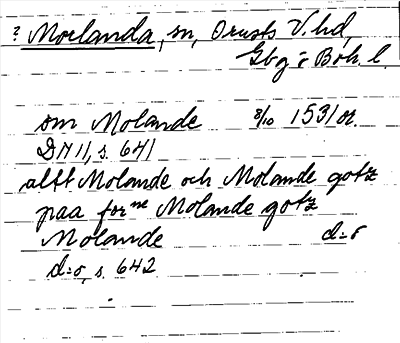 ? Morlanda, sn, Orusts V. hd,
Gbg o Boh. l.
om Molande 8/10 1531 or.
DN 11, s. 641
allt Molande och Molande gotz
paa forne Molande gotz
Molande d:o
d:o, s. 642